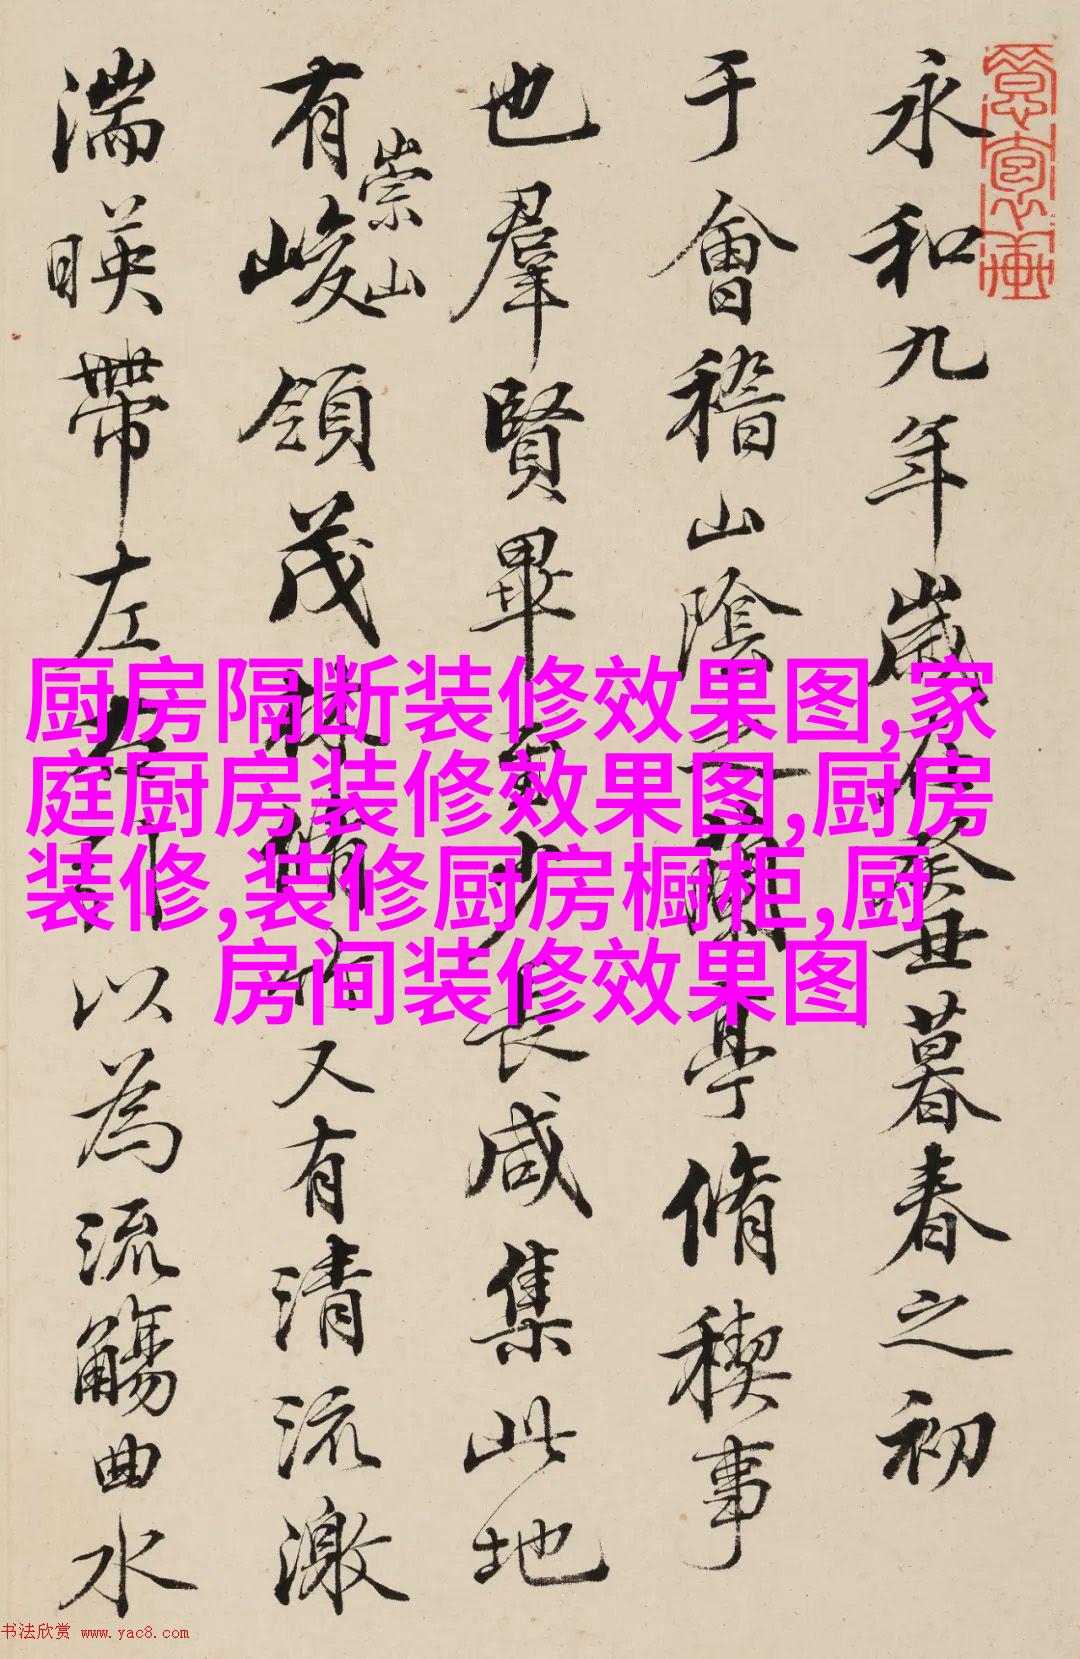 永和九年歲在癸丑暮春之初
于會稽山陰之蘭亭脩稧事
也羣賢畢至少長咸集此地
有崇山峻領茂林脩竹又有清流激
湍暎帶左右引以為流觴曲水
厨房隔断装修效果图,家
庭厨房装修效果图,厨房
装修,装修厨房橱柜,厨
房间装修效果图
书法欣赏 www.yac8.com